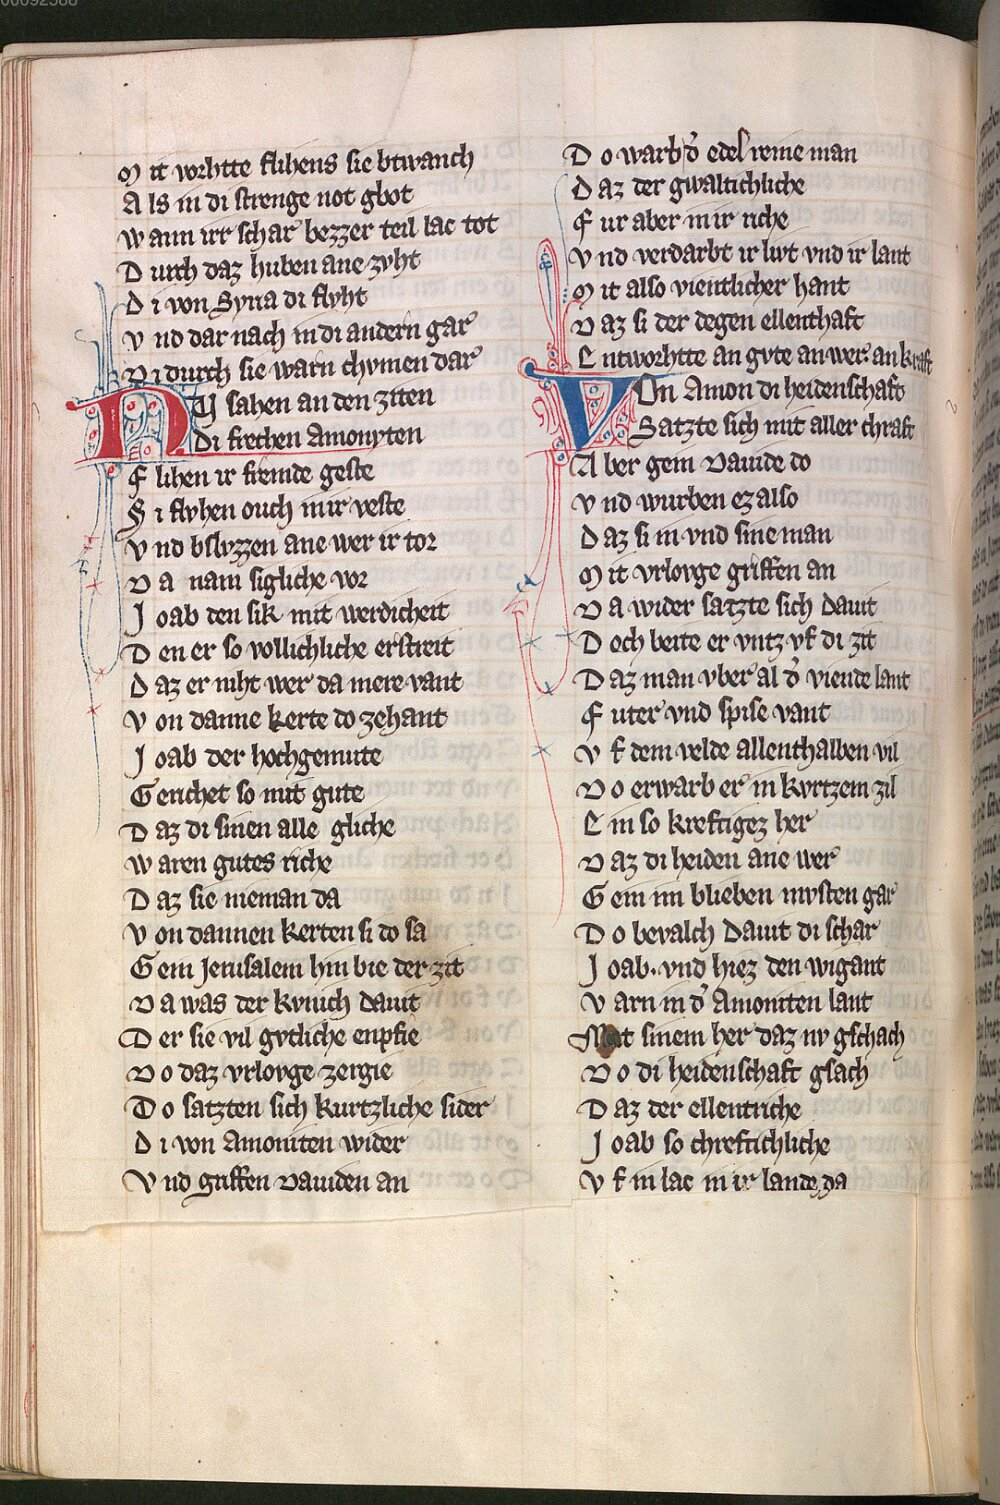 00092588
Mit vorhtte flihens sie btwanch
Als in di strenge not gbot
Wann irr schar bezzer teil lac tot
Durch daz huben ane zvht
Di von Syria di flvht
Vnd dar nach in di andern gar
Di durch sie warn chvmen dar
NV sahen an den ziten
Di frechen Amonyten
Flihen ir fremde geste
Si flvhen ouch in ir veste
Vnd bslvzzen ane wer ir tor
Da nam sigliche vor
Joab den sik mit werdicheit
Den er so vollichliche erstreit
Daz er niht wer da mere vant
Von danne kerte do zehant
Joab der hochgemute
Gerichet so mit gute
Daz di sinen alle gliche
Waren gutes riche
Daz sie nieman da
Von dannen kerten si do sa
Gein Jerusalem hin bie der zit
Da was der kvnich dauit
Der sie vil gvtliche enpfie
Do daz vrlovge zergie
Do satzten sich kurtzliche sider
Di von Amoniten wider
Vnd griffen dauiden an
Do warb d' edel reine man
Daz der gwaltichliche
Fur aber in ir riche
Vnd verdarbt ir livt vnd ir lant
Mit also vientlicher hant
Daz si der degen ellenthaft
Entworhtte an gvte an wer an kraft
VOn Amon di heidenschaft
Satzte sich mit aller chraft
Aber gein Dauide do
Vnd wurben ez also
Daz si in vnd sine man
Mit vrlovge griffen an
Da wider satzte sich Dauit
Doch beite er vntz vf di zit
Daz man vber al d' viende lant
Futer vnd spise vant
Vf dem velde allenthalben vil
Do erwarb er in kvrtzem zil
Ein so kreftigez her
Daz di heiden ane wer
Gein im blieben mvsten gar
Do bevalch Dauit di schar
Joab. vnd hiez den wigant
Varn in d' Amoniten lant
Mit sinem her daz nv gschach
Do di heidenschaft gsach
Daz der ellentriche
Joab so chreftichliche
Vf in lac in ir lande da